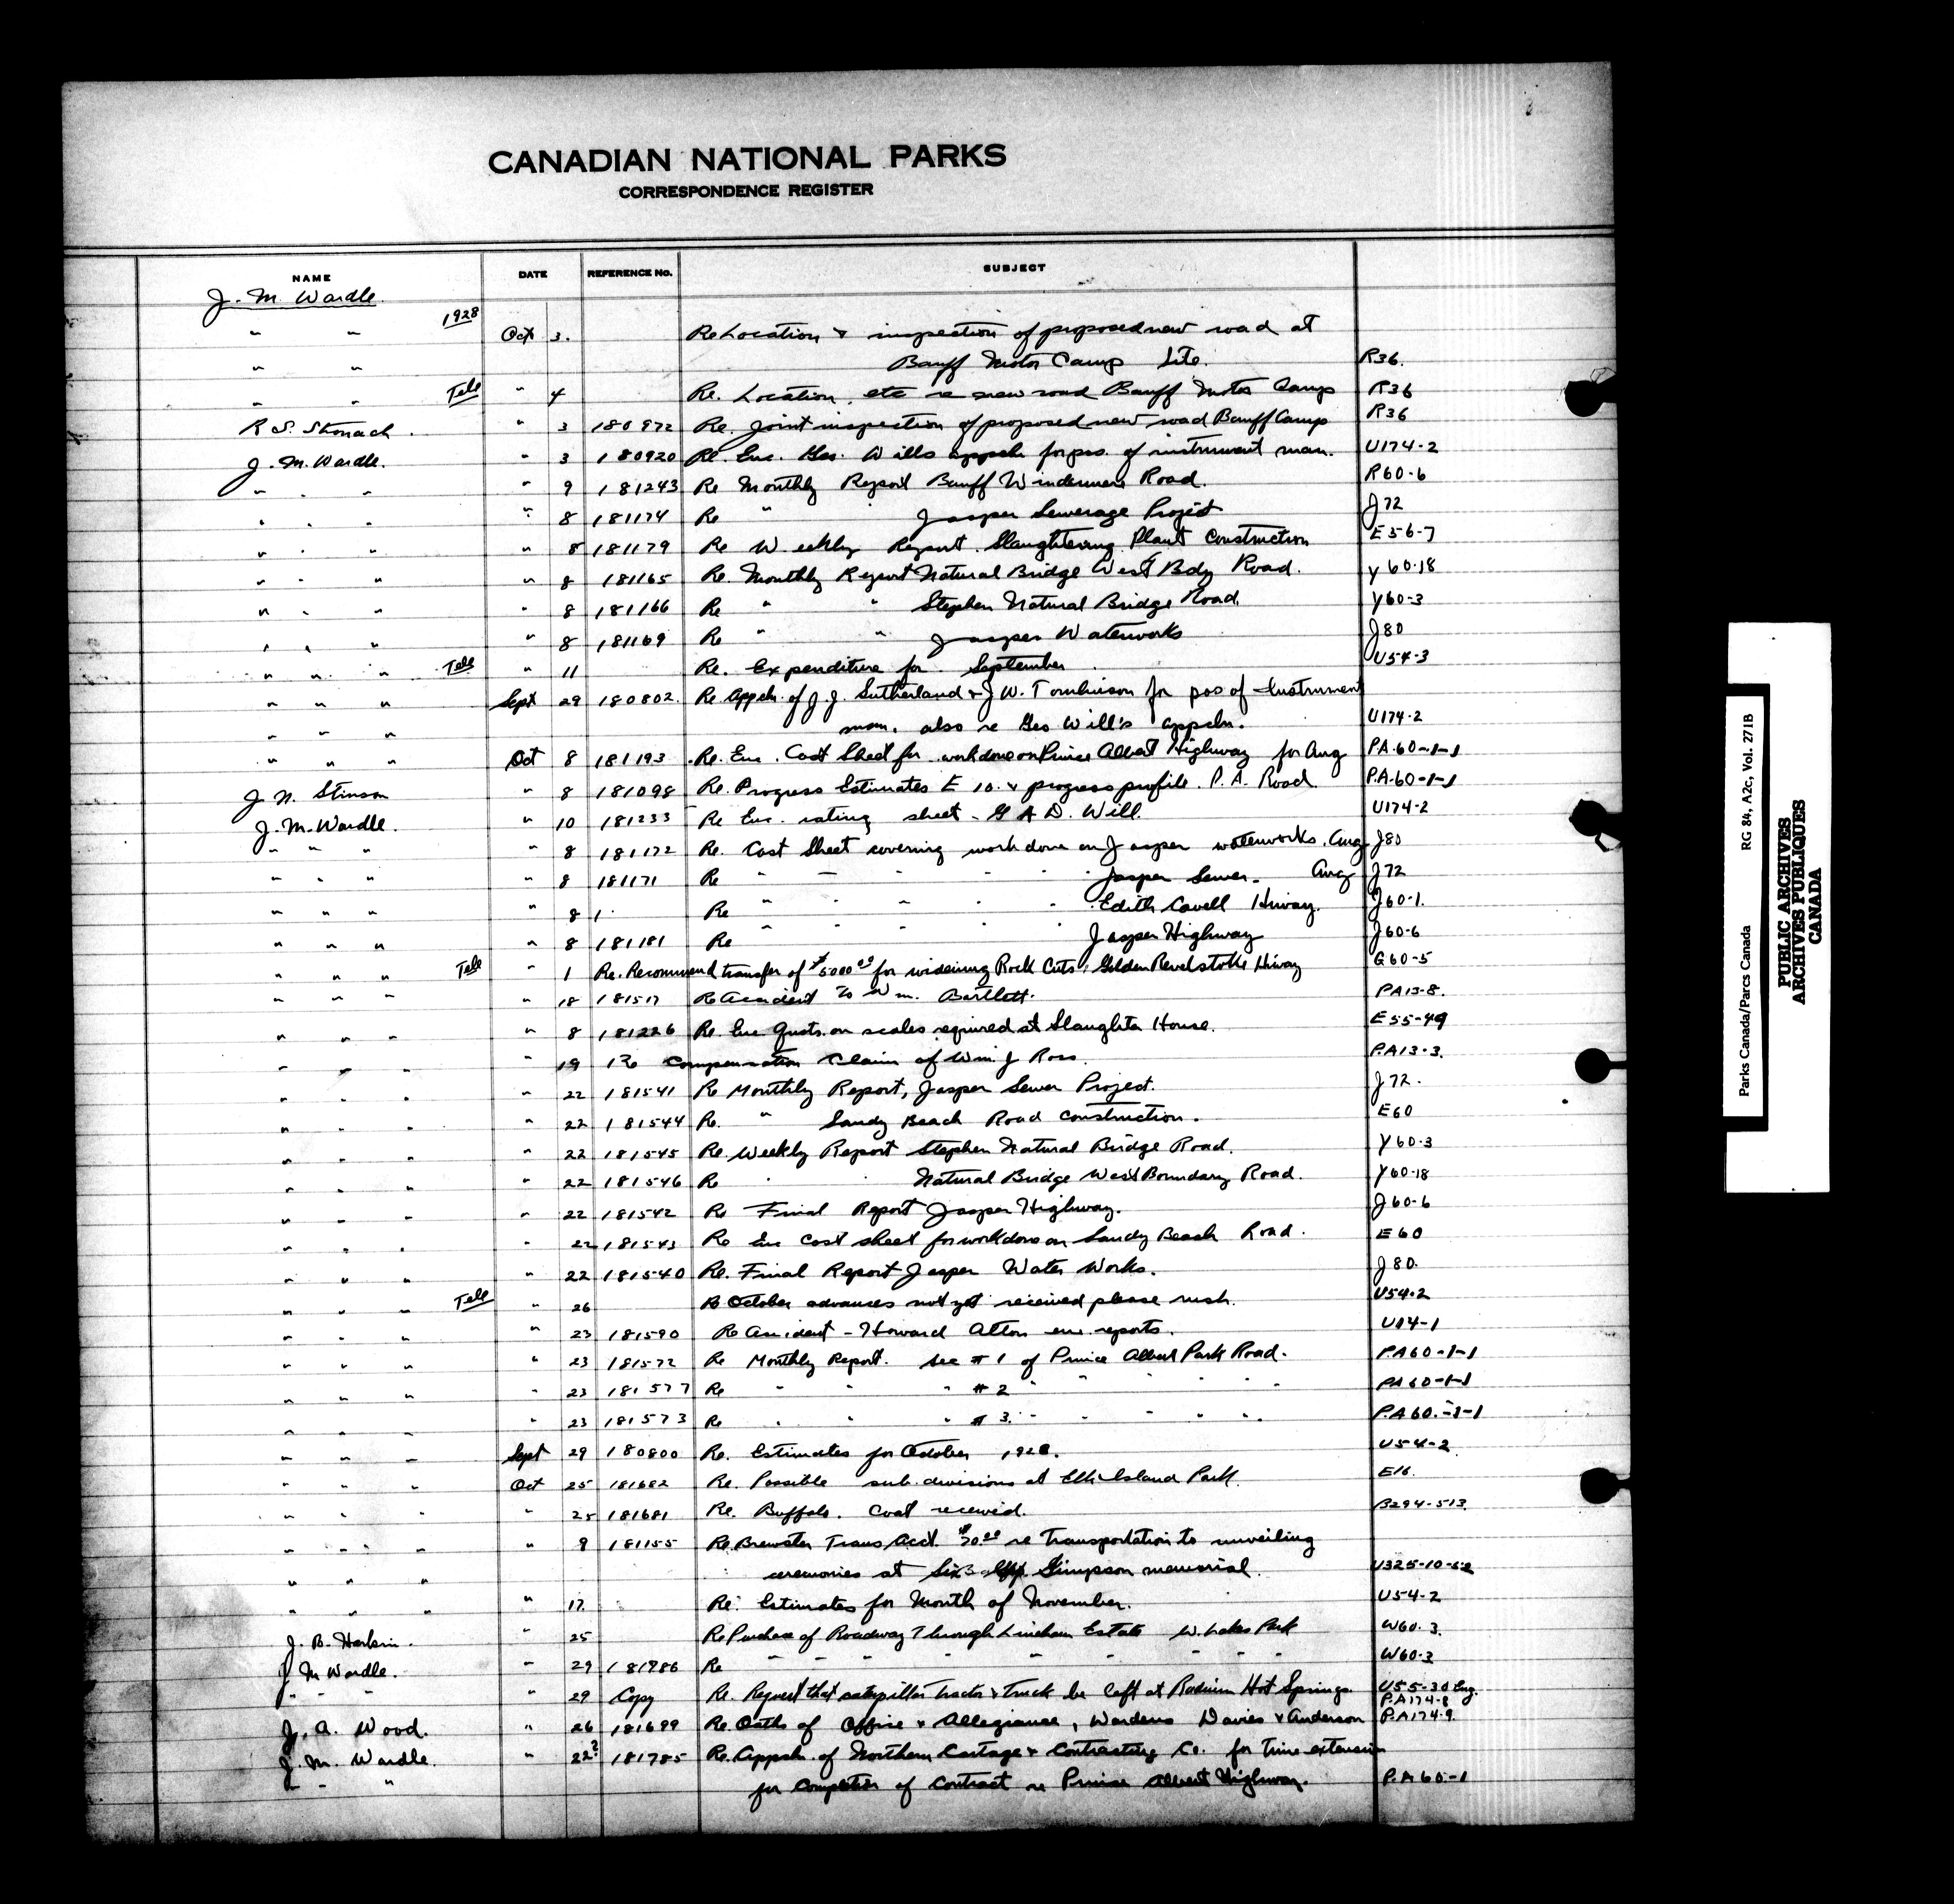 CANADIAN NATIONAL PARKS
CORRESPONDENCE REGISTER
NAME DATE REFERENCE No. SUBJECT
J. M. Wardle.
" " 1928 Oct 3. Re Location & inspection of proposed new road at
" " Banff Motor Camp Site. R36.
" " Tele " 4 Re. Location, etc re new road Banff Motor Camp R36
R S. Stronach. " 3 180972 Re. Joint inspection of proposed new road Banff Camp R36
J. M. Wardle. " 3 180920 Re. Enc. Geo. Wills appcln for pos. of instrument man. U174-2
" " " 9 181243 Re Monthly Report Banff Windermere Road. R60-6
" " " " 8 181174 Re " Jasper Sewerage Project J72
" " " " 8 181179 Re Weekly Report. Slaughtering Plant Construction E56-7
" " " " 8 181165 Re. Monthly Report Natural Bridge West Bdy Road. Y60-18
" " " " 8 181166 Re " " Stephen Natural Bridge Road. Y60-3
" " " " 8 181169 Re " " Jasper Waterworks J80
" " " Tele " 11 Re. Expenditure for September. U54-3
" " " Sept 29 180802. Re Appcln. of J. J. Sutherland & J W. Tomlinson for pos of Instrument
" " " man. also re Geo Will's appcln. U174-2
" " " Oct 8 181193 Re. Enc. Cost Sheet for work done on Prince Albert Highway for Aug PA-60-1-1
J. N. Stinson " 8 181098 Re. Progress Estimates E 10. & progress profile. P. A. Road P.A-60-1-1
J. M. Wardle. " 10 181233 Re Enc. rating sheet - G A D. Will. U174-2
" " " " 8 181172 Re. Cost Sheet covering work done on Jasper waterworks. Aug J80
" " " " 8 181171 Re " " " " " Jasper Sewer. Aug J72
" " " " 8 1 Re " " " " " Edith Cavell Hiway. J60-1.
" " " " 8 181181 Re " " " " " Jasper Highway J60-6
" " " Tele " 1 Re. Recommend transfer of $5000 00 for widening Rock Cuts, Golden Revelstoke Hiway G60-5
" " " " 18 181517 Re Accident to Wm. Bartlett. PA13-8.
" " " " 8 181226 Re Enc Quots. on scales required at Slaughter House. E55-49
" " " " 19 Re Compensation Claim of Wm. J Ross. P.A13-3.
" " " " 22 181541 Re Monthly Report, Jasper Sewer Project. J72.
" " " " 22 181544 Re. " Sandy Beach Road Construction. E60
" " " " 22 181545 Re. Weekly Report Stephen Natural Bridge Road. Y60-3
" " " " 22 181546 Re " " Natural Bridge West Boundary Road. Y60-18
" " " " 22 181542 Re Final Report Jasper Highway. J60-6
" " " " 22 181543 Re Enc cost sheet for work done on Sandy Beach Road. E60
" " " " 22 181540 Re. Final Report Jasper Water Works. J80.
" " " Tele " 26 Re October advances not yet received please rush. U54-2
" " " " 23 181590 Re Accident - Howard Alton enc. reports. U14-1
" " " " 23 181572 Re Monthly Report. Sec # 1 of Prince Albert Park Road. P.A60-1-1
" " " " 23 181577 Re " " " # 2 " " " " " PA60-1-1
" " " " 23 181573 Re " " " # 3. " " " " " P.A60.-1-1
" " " Sept 29 180800 Re. Estimates for October 1928. U54-2
" " " Oct 25 181682 Re. Possible sub-divisions at Elk Island Park. E16.
" " " " 25 181681 Re. Buffalo. Coat received. B294-513.
" " " " 9 181155 Re. Brewster Trans Acct. $70.00 re transportation to unveiling
" " " ceremonies at Sir Geo. Simpson memorial. U325-10-52
" " " " 17. Re. Estimates for Month of November. U54-2
J. B. Harkin. " 25 Re Purchase of Roadway Through Lineham Estate W. Lakes Park W60.3.
J M Wardle. " 29 181986 Re " " " " " " " " W60-3
" " " " 29 Copy Re. Request that caterpillar tractor & truck be left at Radium Hot Springs. U55-30 Eng.
P.A174-8
J. A. Wood. " 26 181699 Re. Oaths of Office & Allegiance, Wardens Davies & Anderson P.A174-9.
J. M. Wardle. " 22? 181785 Re. Appcln. of Northern Cartage & Contracting Co. for time extension
" " " for completion of Contract re Prince Albert Highway. P.A60-1
Parks Canada/Parcs Canada RG 84, A2c, Vol. 271B
PUBLIC ARCHIVES
ARCHIVES PUBLIQUES
CANADA